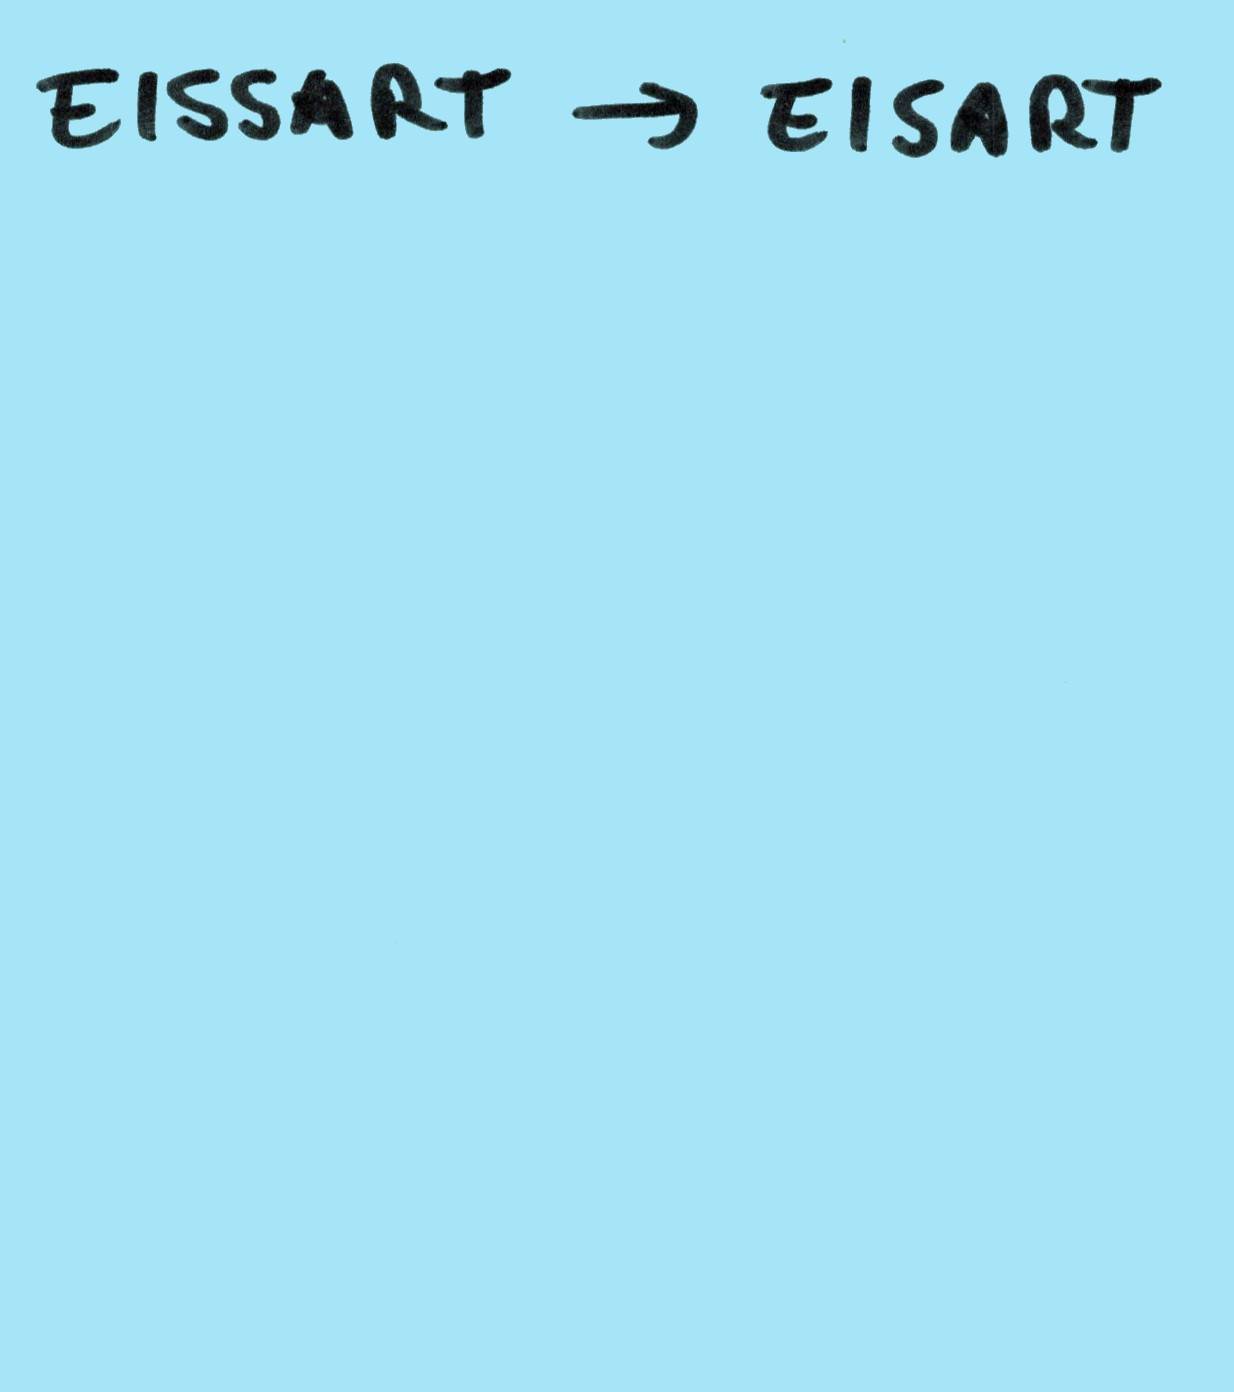 EISSART → EISART